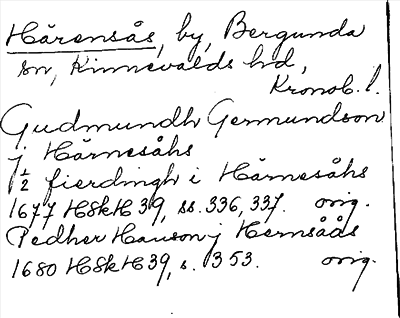 Härensås, by, Bergunda
sn, Kinnevalds hd,
Kronob. l.
Gudmundh Germundson
j Härnesåhs
1/2 fierdingh i Härnesåhs
1677 HSkH 39, ss. 336, 337. orig.
Pedher Hanson j Hernsåås
1680 HSkH 39, s. 353. orig.